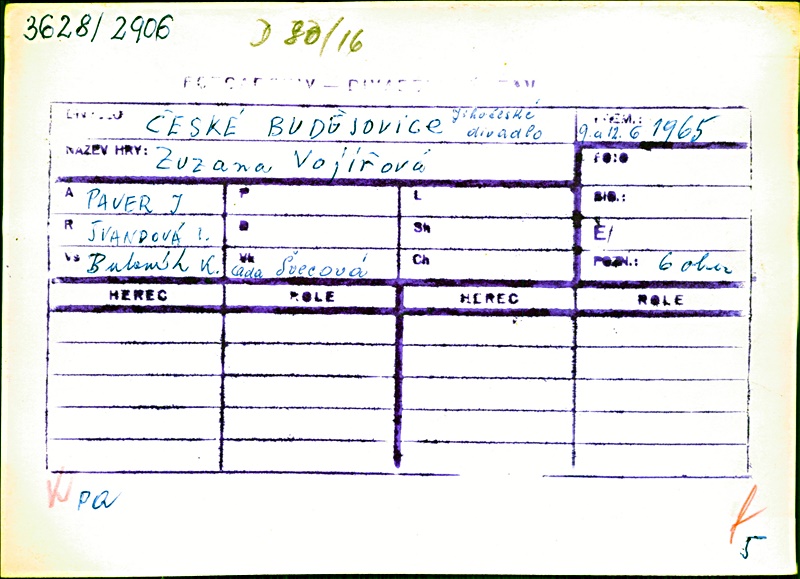 3628/2906
D 80/16
DIVADLO ČESKÉ BUDĚJOVICE Jihočeské divadlo
PREM.: 9. a 12. 6 1965
NÁZEV HRY: Zuzana Vojířová
FOTO
A PAVER J
P
L
SIG.:
R ŠVANDOVÁ
D
Sh
Č/
Vs K.
Vk Švecová
Ch
POZN.: 6 obr
HEREC ROLE HEREC ROLE
pa
5